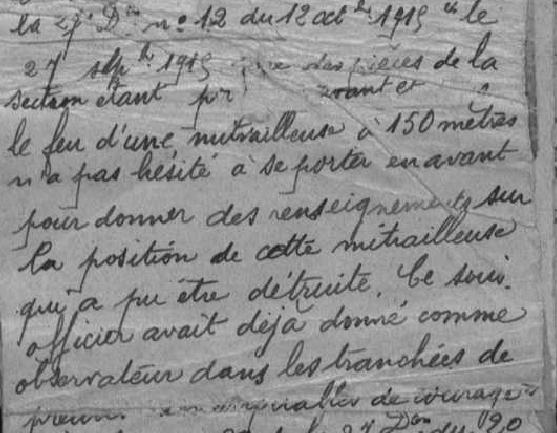 la 2e Don no 12 du 12 octbre 1915 le
27 sepbre 1915 des pièces de la
section étant avant et
le feu d'une mitrailleuse à 150 mètres
n'a pas hésité à se porter en avant
pour donner des renseignements sur
la position de cette mitrailleuse
qui a pu être détruite. Ce sous.
officier avait déjà donné comme
observateur dans les tranchées de
de courage
Don du 20